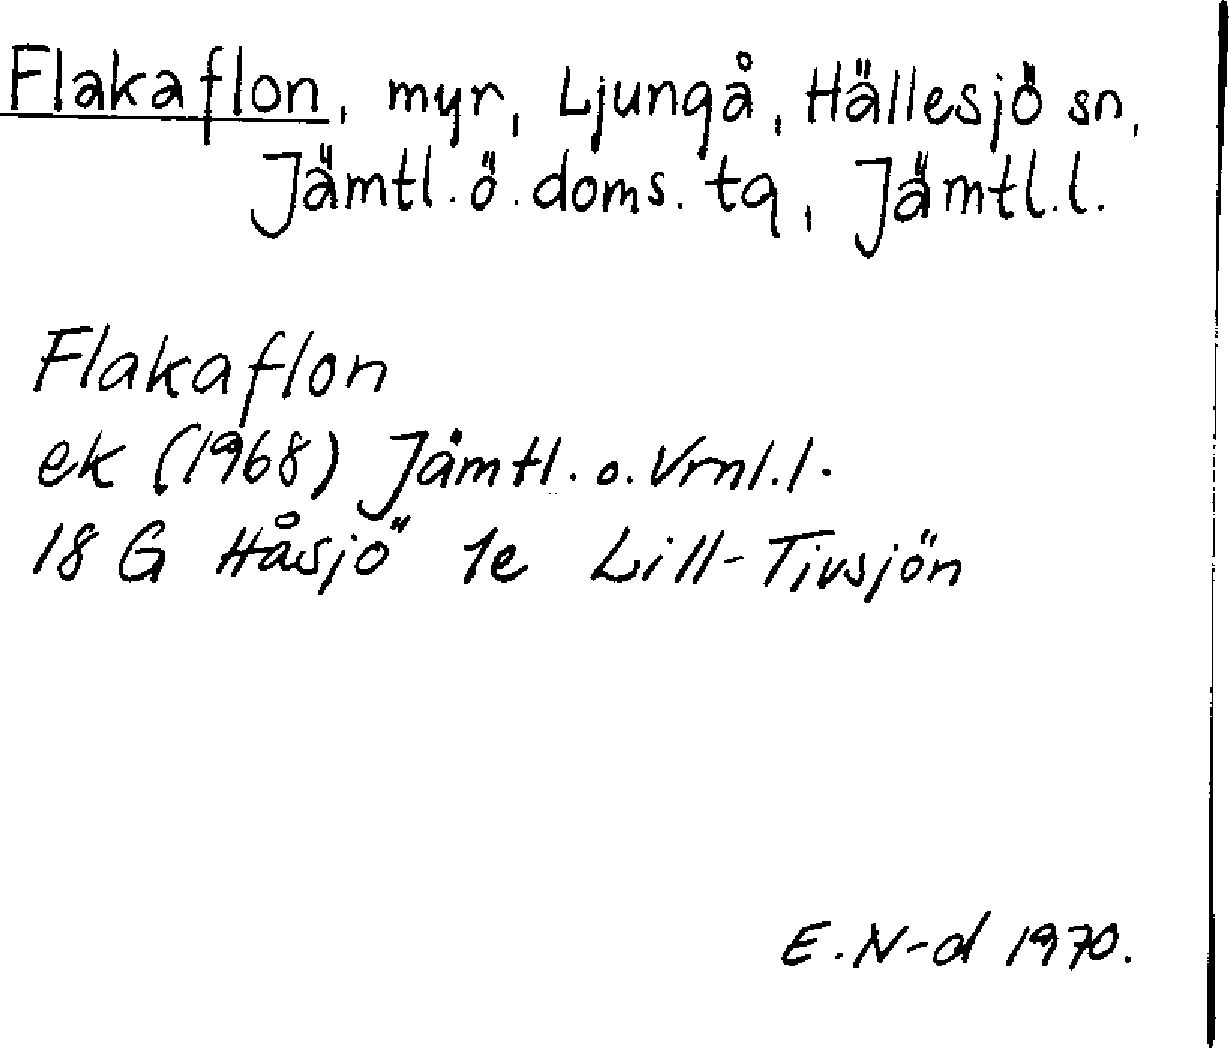 Flakaflon, myr, Ljungå, Hällesjö sn,
Jämtl. ö. doms. tg, Jämtl. l.
Flakaflon
ek (1968) Jämtl. o. Vrnl. l.
18 G Håsjö 1e Lill-Tivsjön
E. N-d 1970.